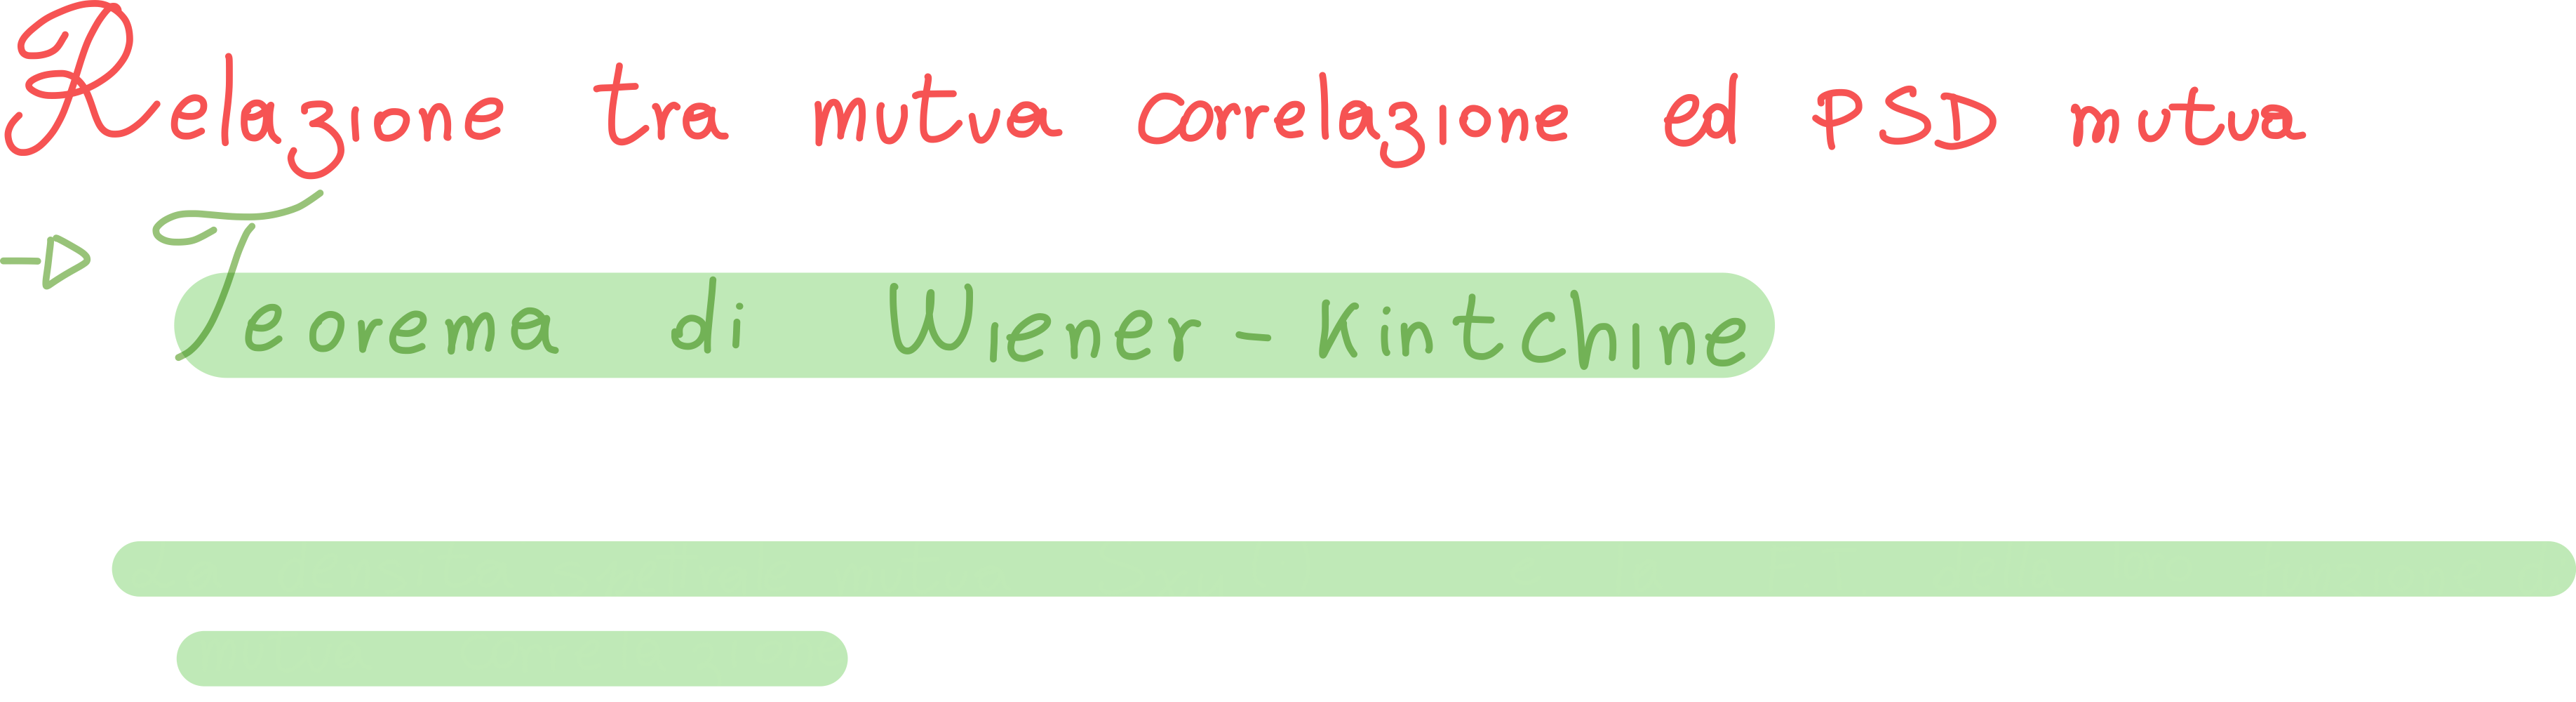 Relazione tra mutua correlazione ed PSD mutua
→ Teorema di Wiener-Kintchine